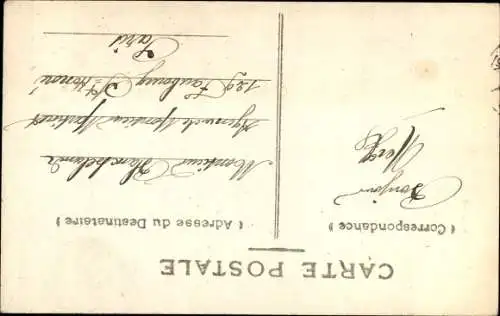 CARTE POSTALE
( Correspondance )
Bonjour
( Adresse du Destinataire )
Monsieur
Agence Maritime
129 Faubourg St Honoré
Paris